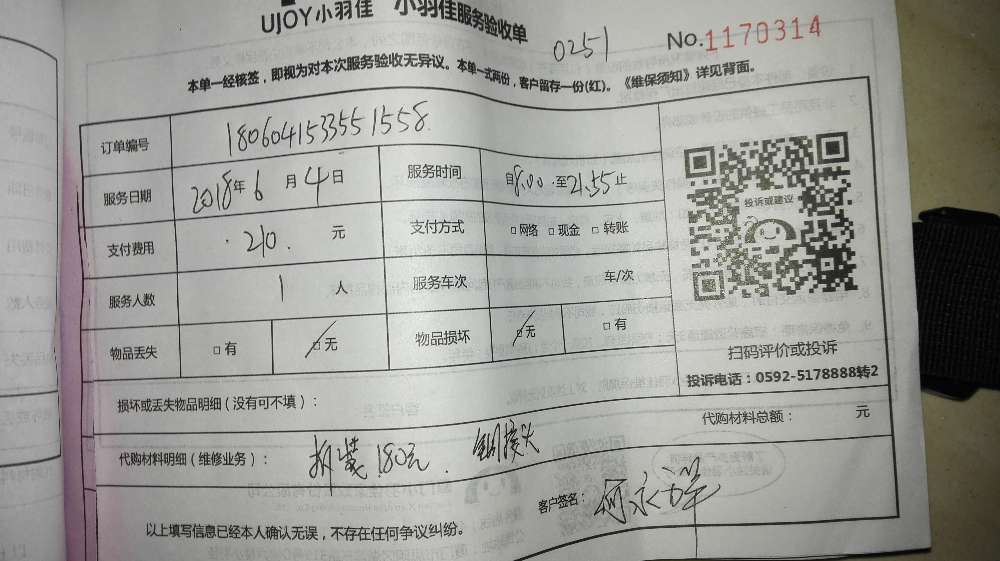 UJOY小羽佳 小羽佳服务验收单
0251 No.1170314
本单一经核签，即视为对本次服务验收无异议。本单一式两份，客户留存一份(红)。《维保须知》详见背面。
订单编号 1806041533551558
服务日期 2018年6月4日 服务时间 自8:00至21:55止
支付费用 210. 元 支付方式 □网络 □现金 □转账
投诉或建议
服务人数 1 人 服务车次 车/次
物品丢失 □有 □无 物品损坏 □无 □有
扫码评价或投诉
投诉电话：0592-5178888转2
损坏或丢失物品明细（没有可不填）：
代购材料总额： 元
代购材料明细（维修业务）： 拆装180元. 铜接头
客户签名： 何永
以上填写信息已经本人确认无误，不存在任何争议纠纷。